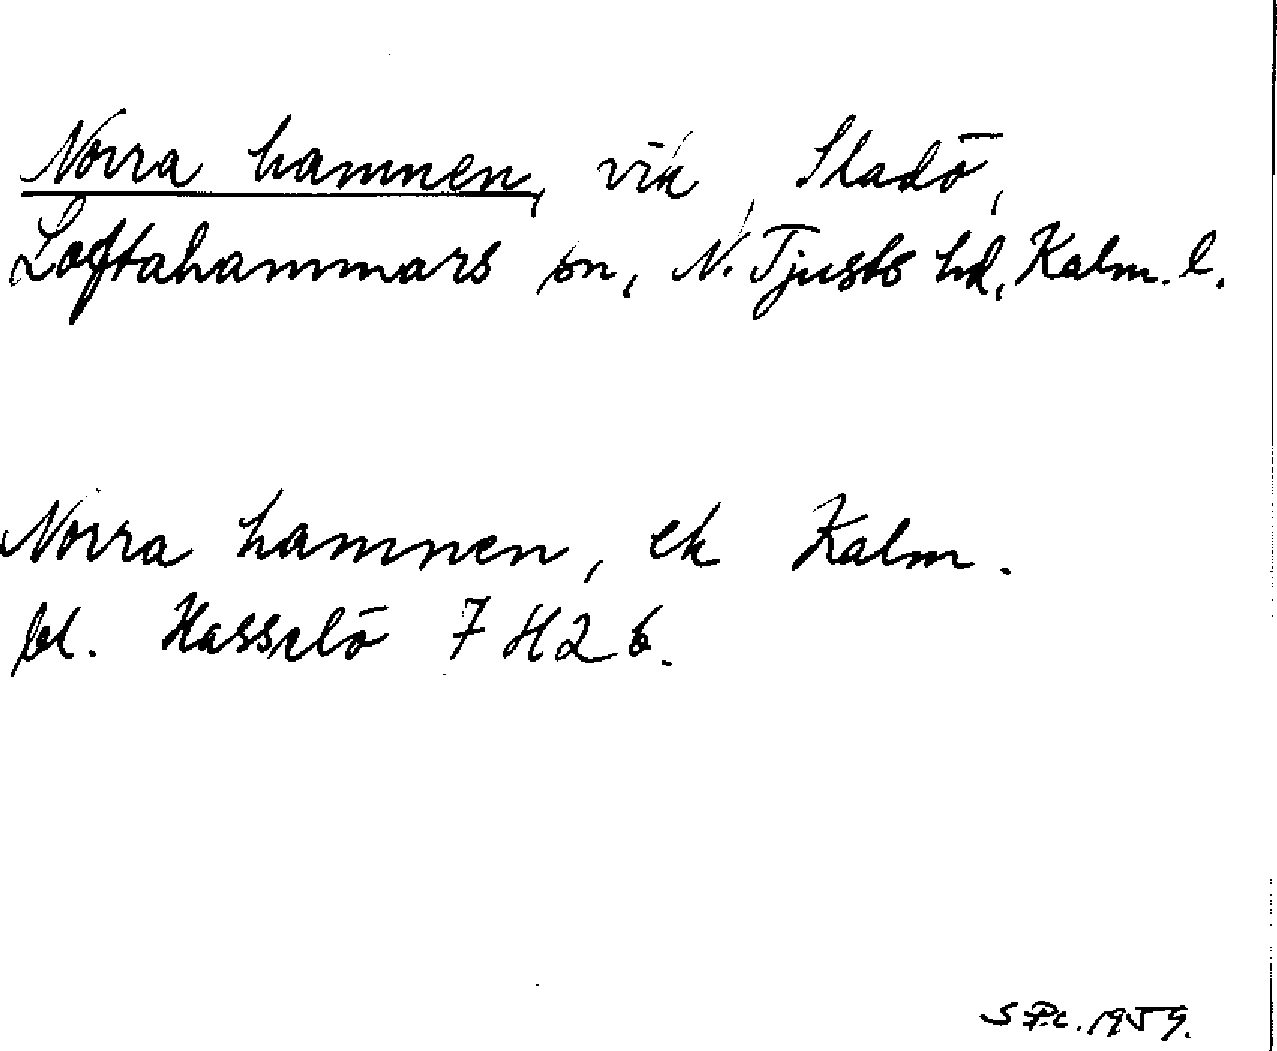 Norra hamnen, vik, Sladö,
Loftahammars sn, N. Tjusts hd, Kalm. l.
Norra hamnen, ek Kalm.
bl. Hasselö 7 H 2 b.
1959.